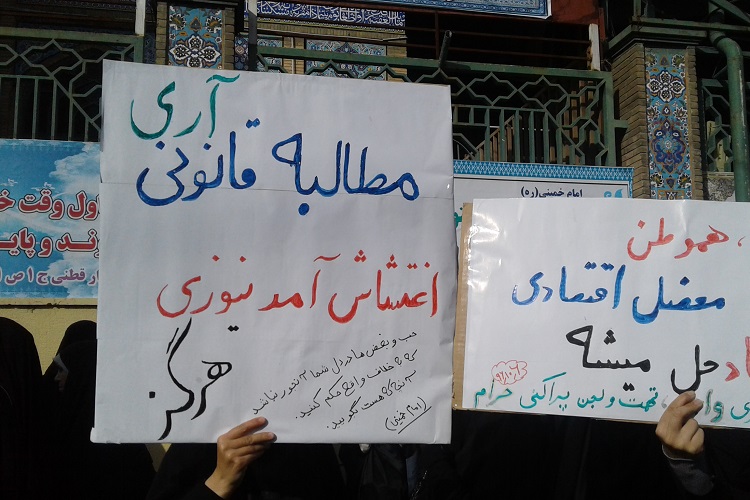 آری
مطالبه قانونی
اغتشاش آمدنیوزی
هرگز
حب و بغض ها در دل شما آنجور نباشد
که خلاف واقع حکم کنید.
آنچه که هست بگویید.
(امام خمینی)
هموطن
معضل اقتصادی
حل میشه
تهمت و لجن پراکنی حرام
امام خمینی (ره)
اول وقت
ند و پای
ار قطنی ج ۱ ص